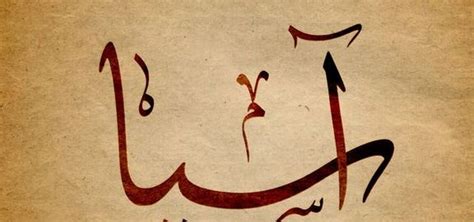 آسيا